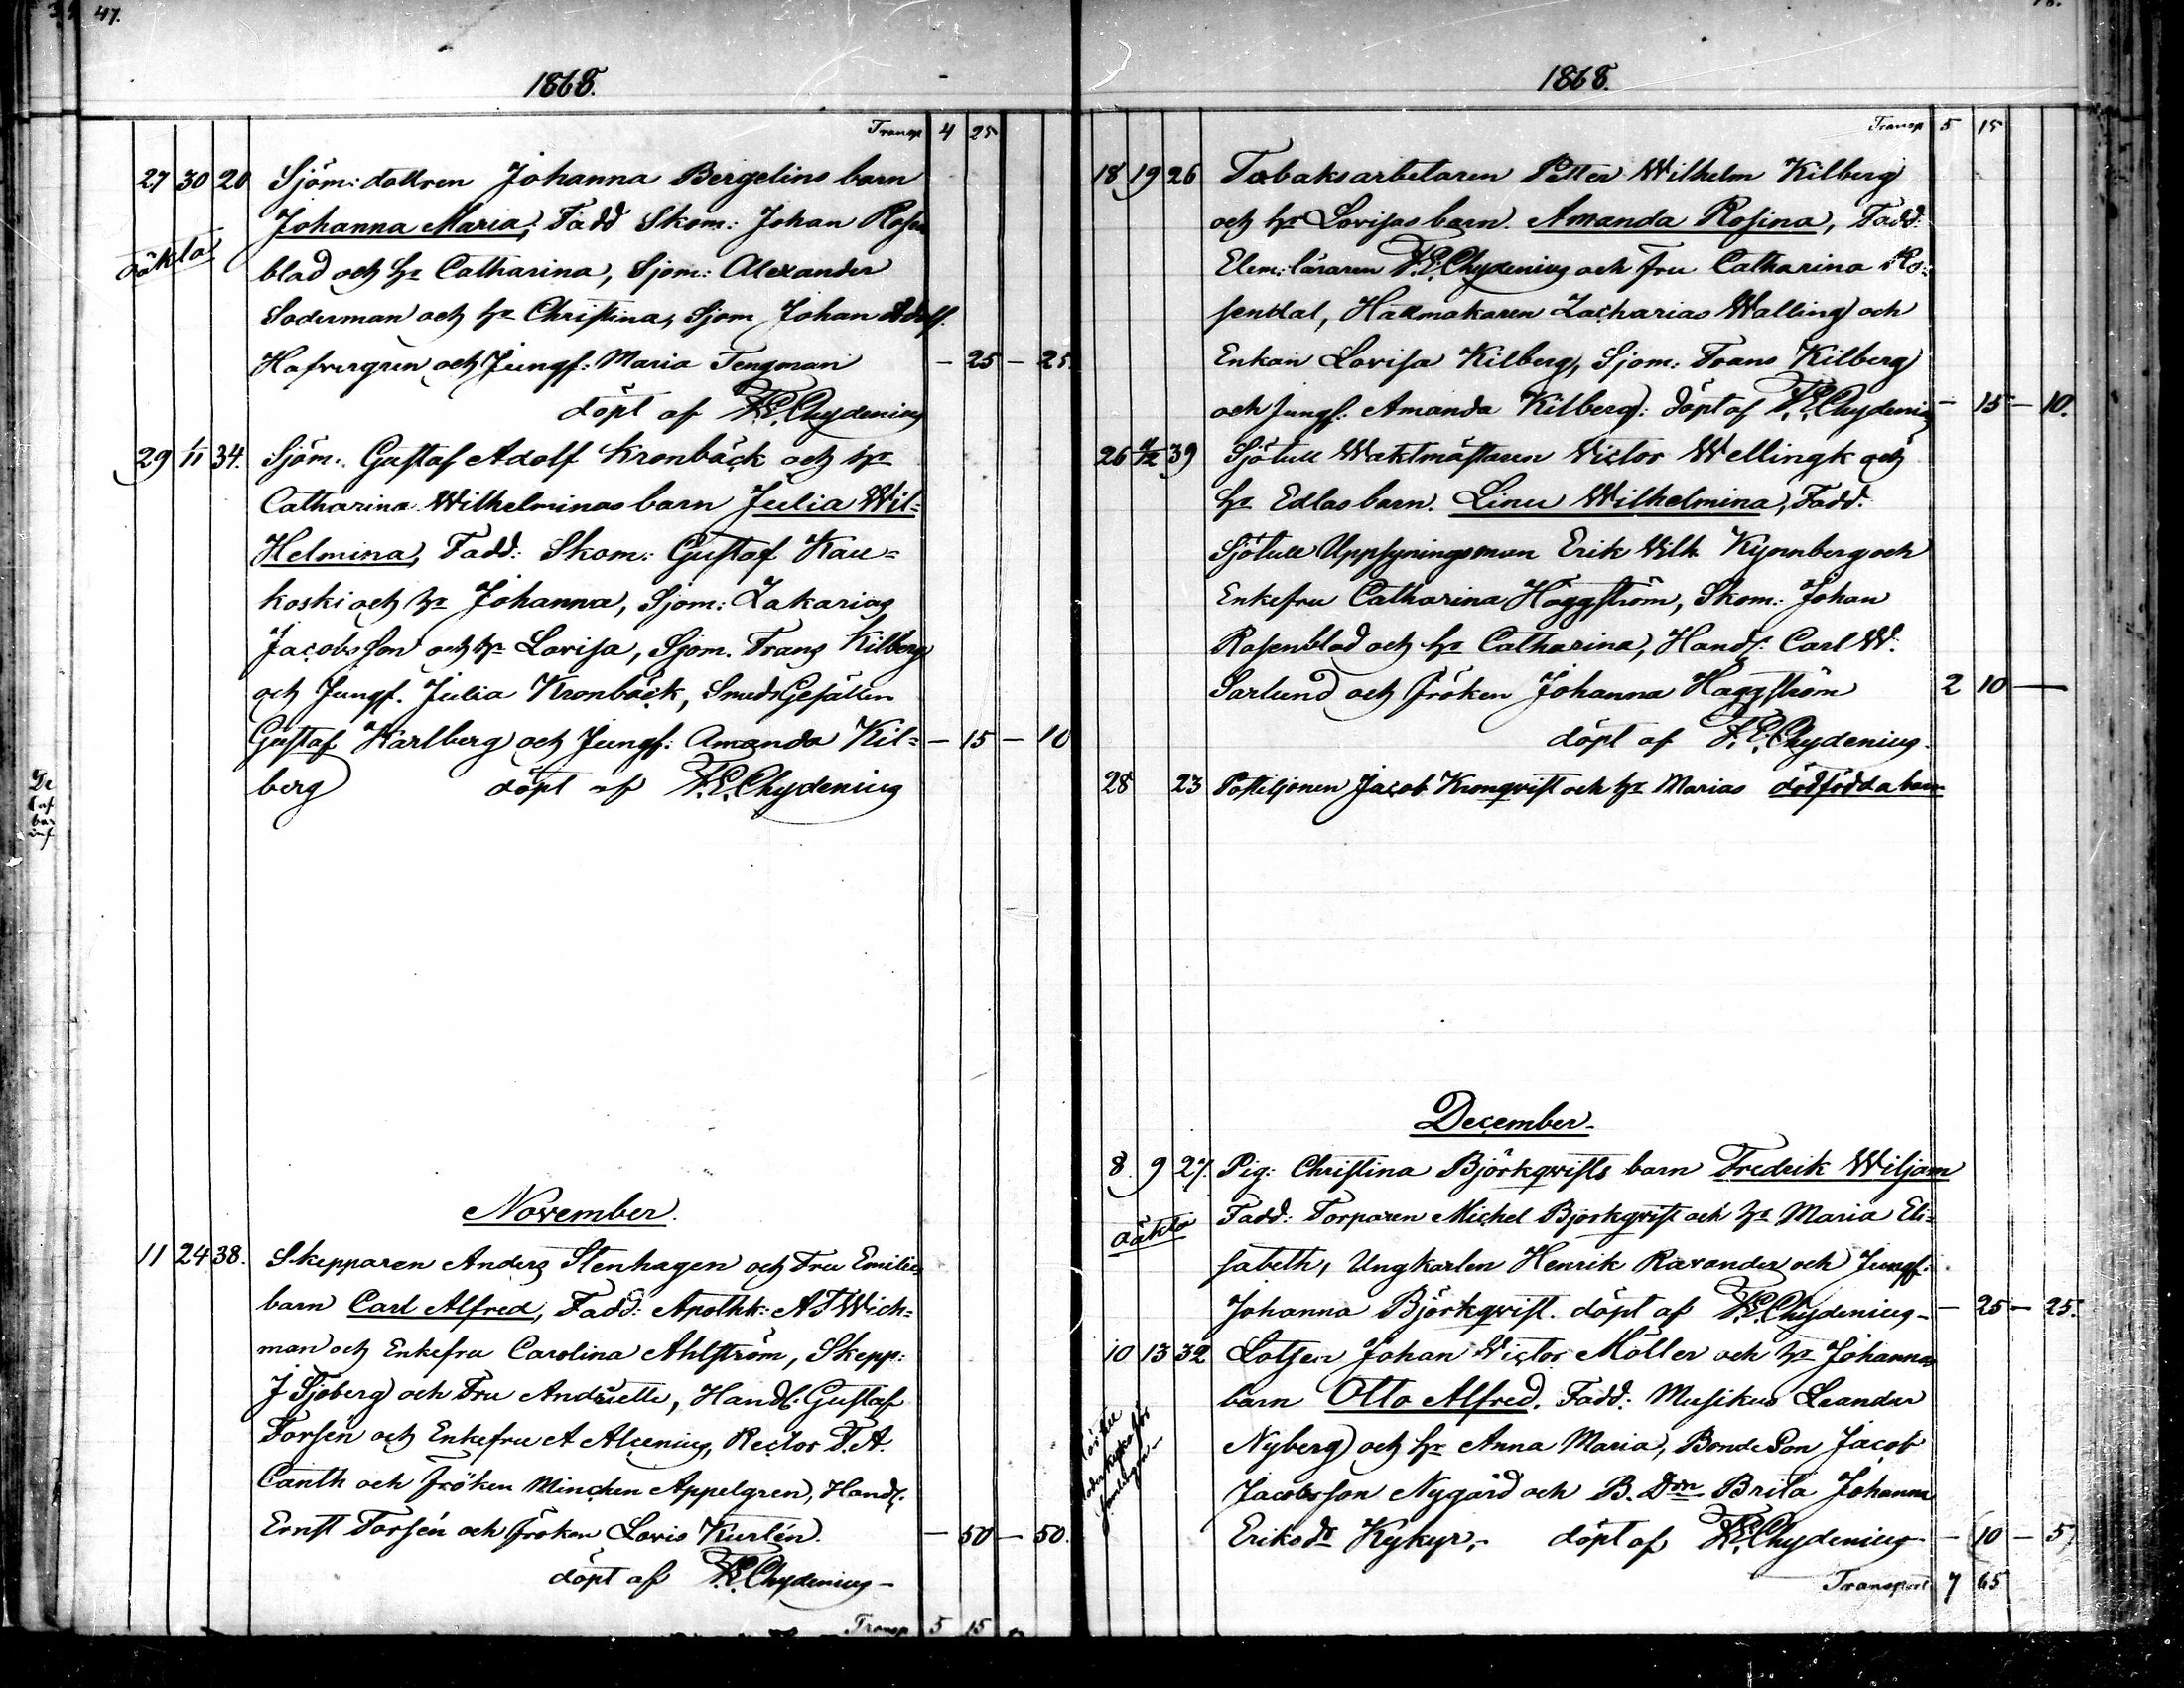 47.
1868.
Transp 4 25
27 30 20 Sjöm: dottren Johanna Bergelins barn
Johanna Maria, Fadd Skom: Johan Rosen
oäkta
blad och hr Catharina, Sjom: Alexander
Soderman och hr Christina, Sjom Johan Adolf.
Hafvergren och Jungf: Maria Tengman — 25 — 25.
döpt af F.E. Chydenius
29 1/11 34. Sjöm. Gustaf Adolf Kronbäck och hr
Catharina Wilhelminas barn Julia Wil=
Helmina, Fadd: Skom: Gustaf Kau=
koski och hr Johanna, Sjom: Zakarias
Jacobsson och hr Lovisa, Sjom. Frans Kilberg
och Jungf. Julia Kronbäck, Smeds Gesällen
Gustaf Karlberg och Jungf: Amanda Kil= — 15 — 10
berg döpt af F.E. Chydenius
November.
11 24 38. Skepparen Anders Stenhagen och Fru Emilies
barn Carl Alfred, Fadd: Apothk: A F Wich=
man och Enkefru Carolina Ahlström, Skepp:
J Sjoberg och Fru Andriette, Handl: Gustaf
Forsén och Enkefru A Alcenius, Rector F. A.
Canth och Fröken Minchen Appelgren, Handl.
Ernst Forsén och Froken Lovis Kurlén. — 50 — 50.
döpt af F.E. Chydenius —
Transp 5 15
1868.
Transp 5 15
18 19 26 Tobaksarbetaren Petter Wilhelm Kilberg
och hr Lovisas barn. Amanda Rosina, Fadd:
Elem: läraren F.E. Chydenius och Fru Catharina Ro=
sendal, Hattmakaren Zacharias Walling och
Enkan Lovisa Kilberg, Sjom: Frans Kilberg
och Jungf. Amanda Kilberg: döpt af F.E. Chydenius — 15 — 10.
26 4/12 39 Sjötull Waktmästaren Victor Wellingk och
hr Edlas barn. Linu Wilhelmina, Fadd:
Sjötull Uppsyningsman Erik Vilh
Enkefru Catharina Häggström, Skom: Johan
Rosenblad och hr Catharina, Handl: Carl W.
Sarlund och Fröken Johanna Haggström 2 10 —
döpt af F.E. Chydenius.
28 23 Postiljonen Jacob Kronqvist och hr Marias dödfödda barn
December.
8. 9 27. Pig: Christina Björkqvists barn Fredrik Wiljam
oäkta
Fadd: Torparen Michel Bjorkqvist och hr Maria Eli=
sabeth, Ungkarlen Henrik Ravander och Jungf:
Johanna Björkqvist. döpt af F.E. Chydenius — 25 — 25.
10 13 32 Lotsen Johan Victor Möller och hr Johannas
barn Otto Alfred. Fadd: Musikus Leander
Nyberg och hr Anna Maria, Bonde Son Jacob
Jacobsson Nygård och B. Drn Brita Johanna
Eriks dr Kykyr, döpt af F.E. Chydenius — 10 — 5
Transport 7 65